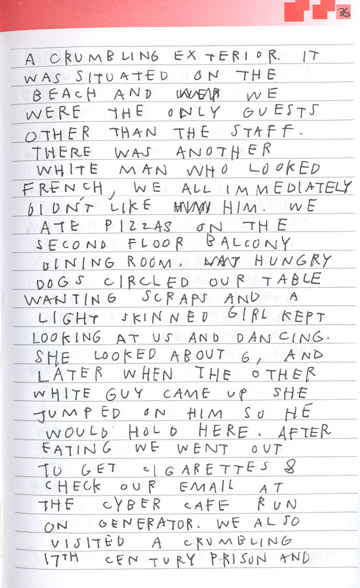 76
A CRUMBLING EXTERIOR. IT
WAS SITUATED ON THE
BEACH AND WE
WERE THE ONLY GUESTS
OTHER THAN THE STAFF.
THERE WAS ANOTHER
WHITE MAN WHO LOOKED
FRENCH, WE ALL IMMEDIATELY
DIDN'T LIKE HIM. WE
ATE PIZZAS ON THE
SECOND FLOOR BALCONY
DINING ROOM. HUNGRY
DOGS CIRCLED OUR TABLE
WANTING SCRAPS AND A
LIGHT SKINNED GIRL KEPT
LOOKING AT US AND DANCING.
SHE LOOKED ABOUT 6, AND
LATER WHEN THE OTHER
WHITE GUY CAME UP SHE
JUMPED ON HIM SO HE
WOULD HOLD HERE. AFTER
EATING WE WENT OUT
TO GET CIGARETTES &
CHECK OUR EMAIL AT
THE CYBER CAFE RUN
ON GENERATOR. WE ALSO
VISITED A CRUMBLING
17TH CENTURY PRISON AND